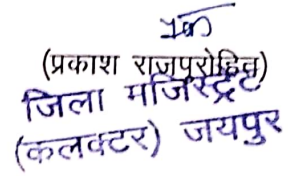 (प्रकाश राजपुरोहित)
जिला मजिस्ट्रेट
(कलक्टर) जयपुर